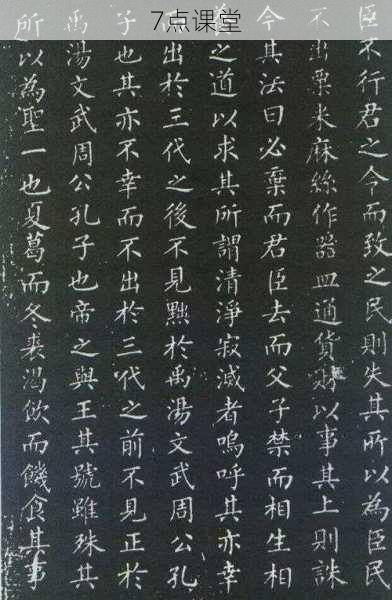 7点课堂
臣不行君之令而致之民則失其所以為臣民
不出粟米麻絲作器皿通貨財以事其上則誅
今其法曰必棄而君臣去而父子禁而相生相
之道以求其所謂清淨寂滅者嗚呼其亦幸
出於三代之後不見黜於禹湯文武周公孔
子也其亦不幸而不出於三代之前不見正於
禹湯文武周公孔子也帝之與王其號雖殊其
所以為聖一也夏葛而冬裘渴飲而饑食其事